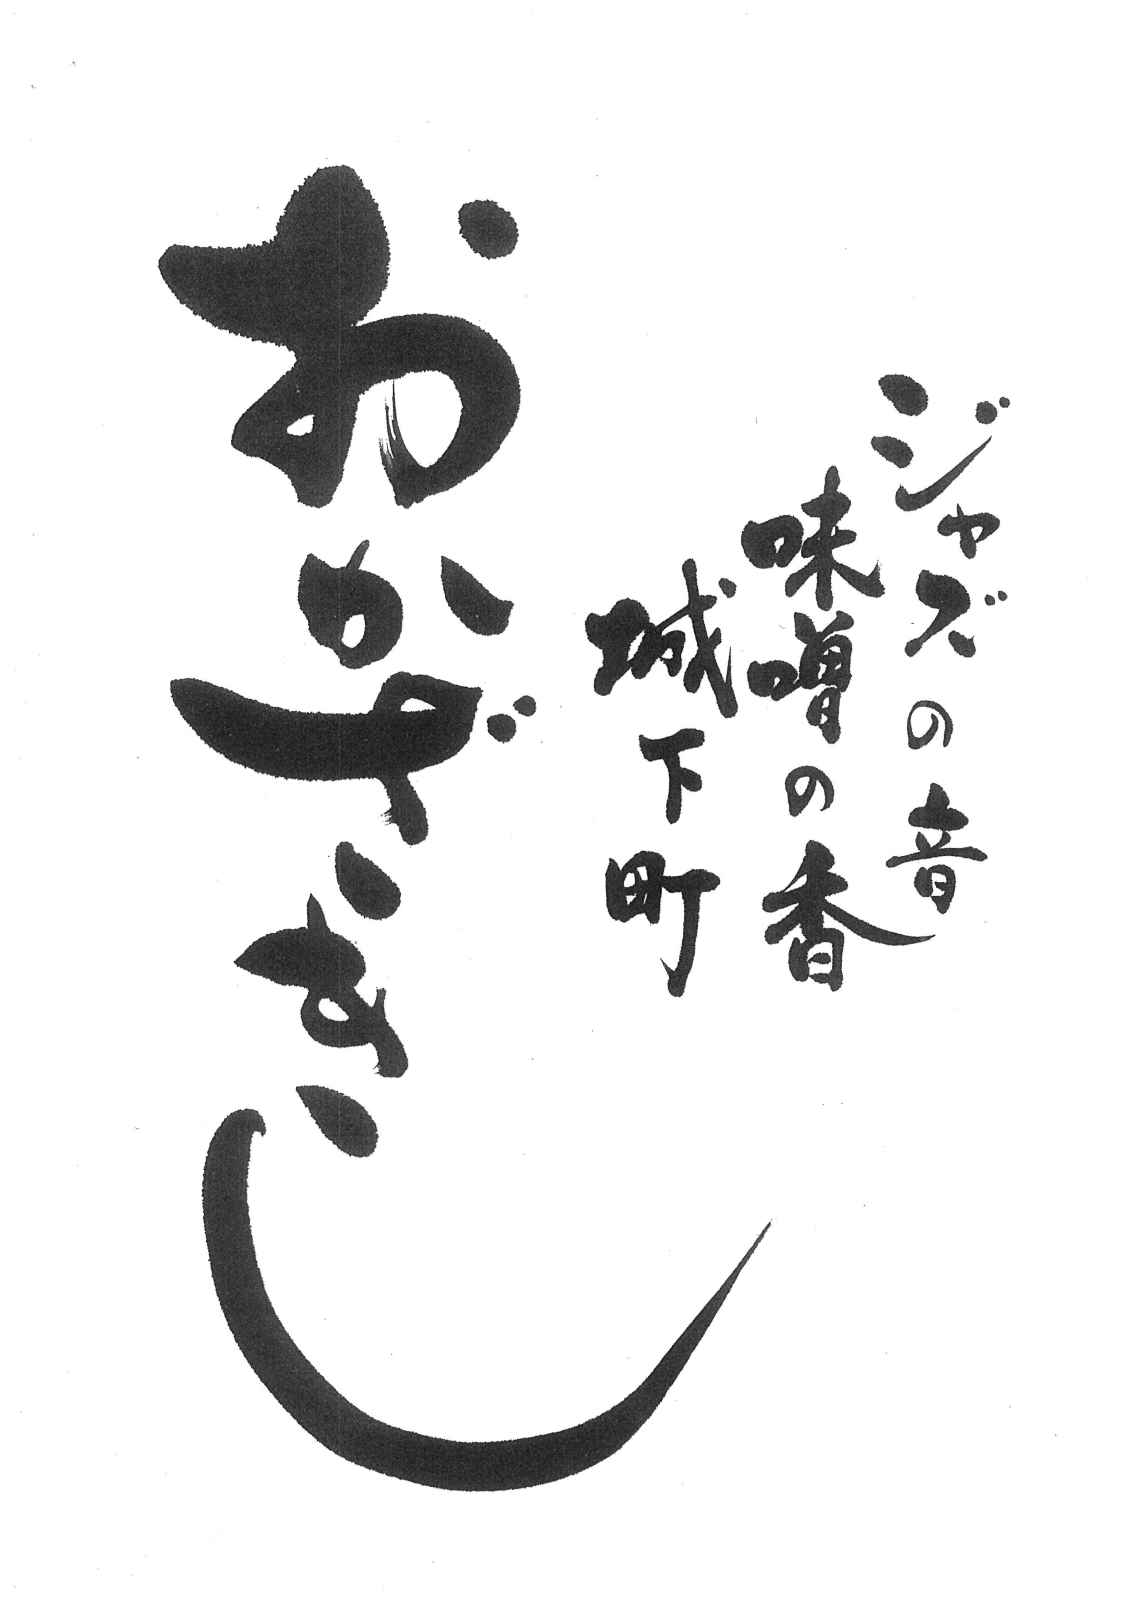 ジャズの音
味噌の香
城下町
おかざきし